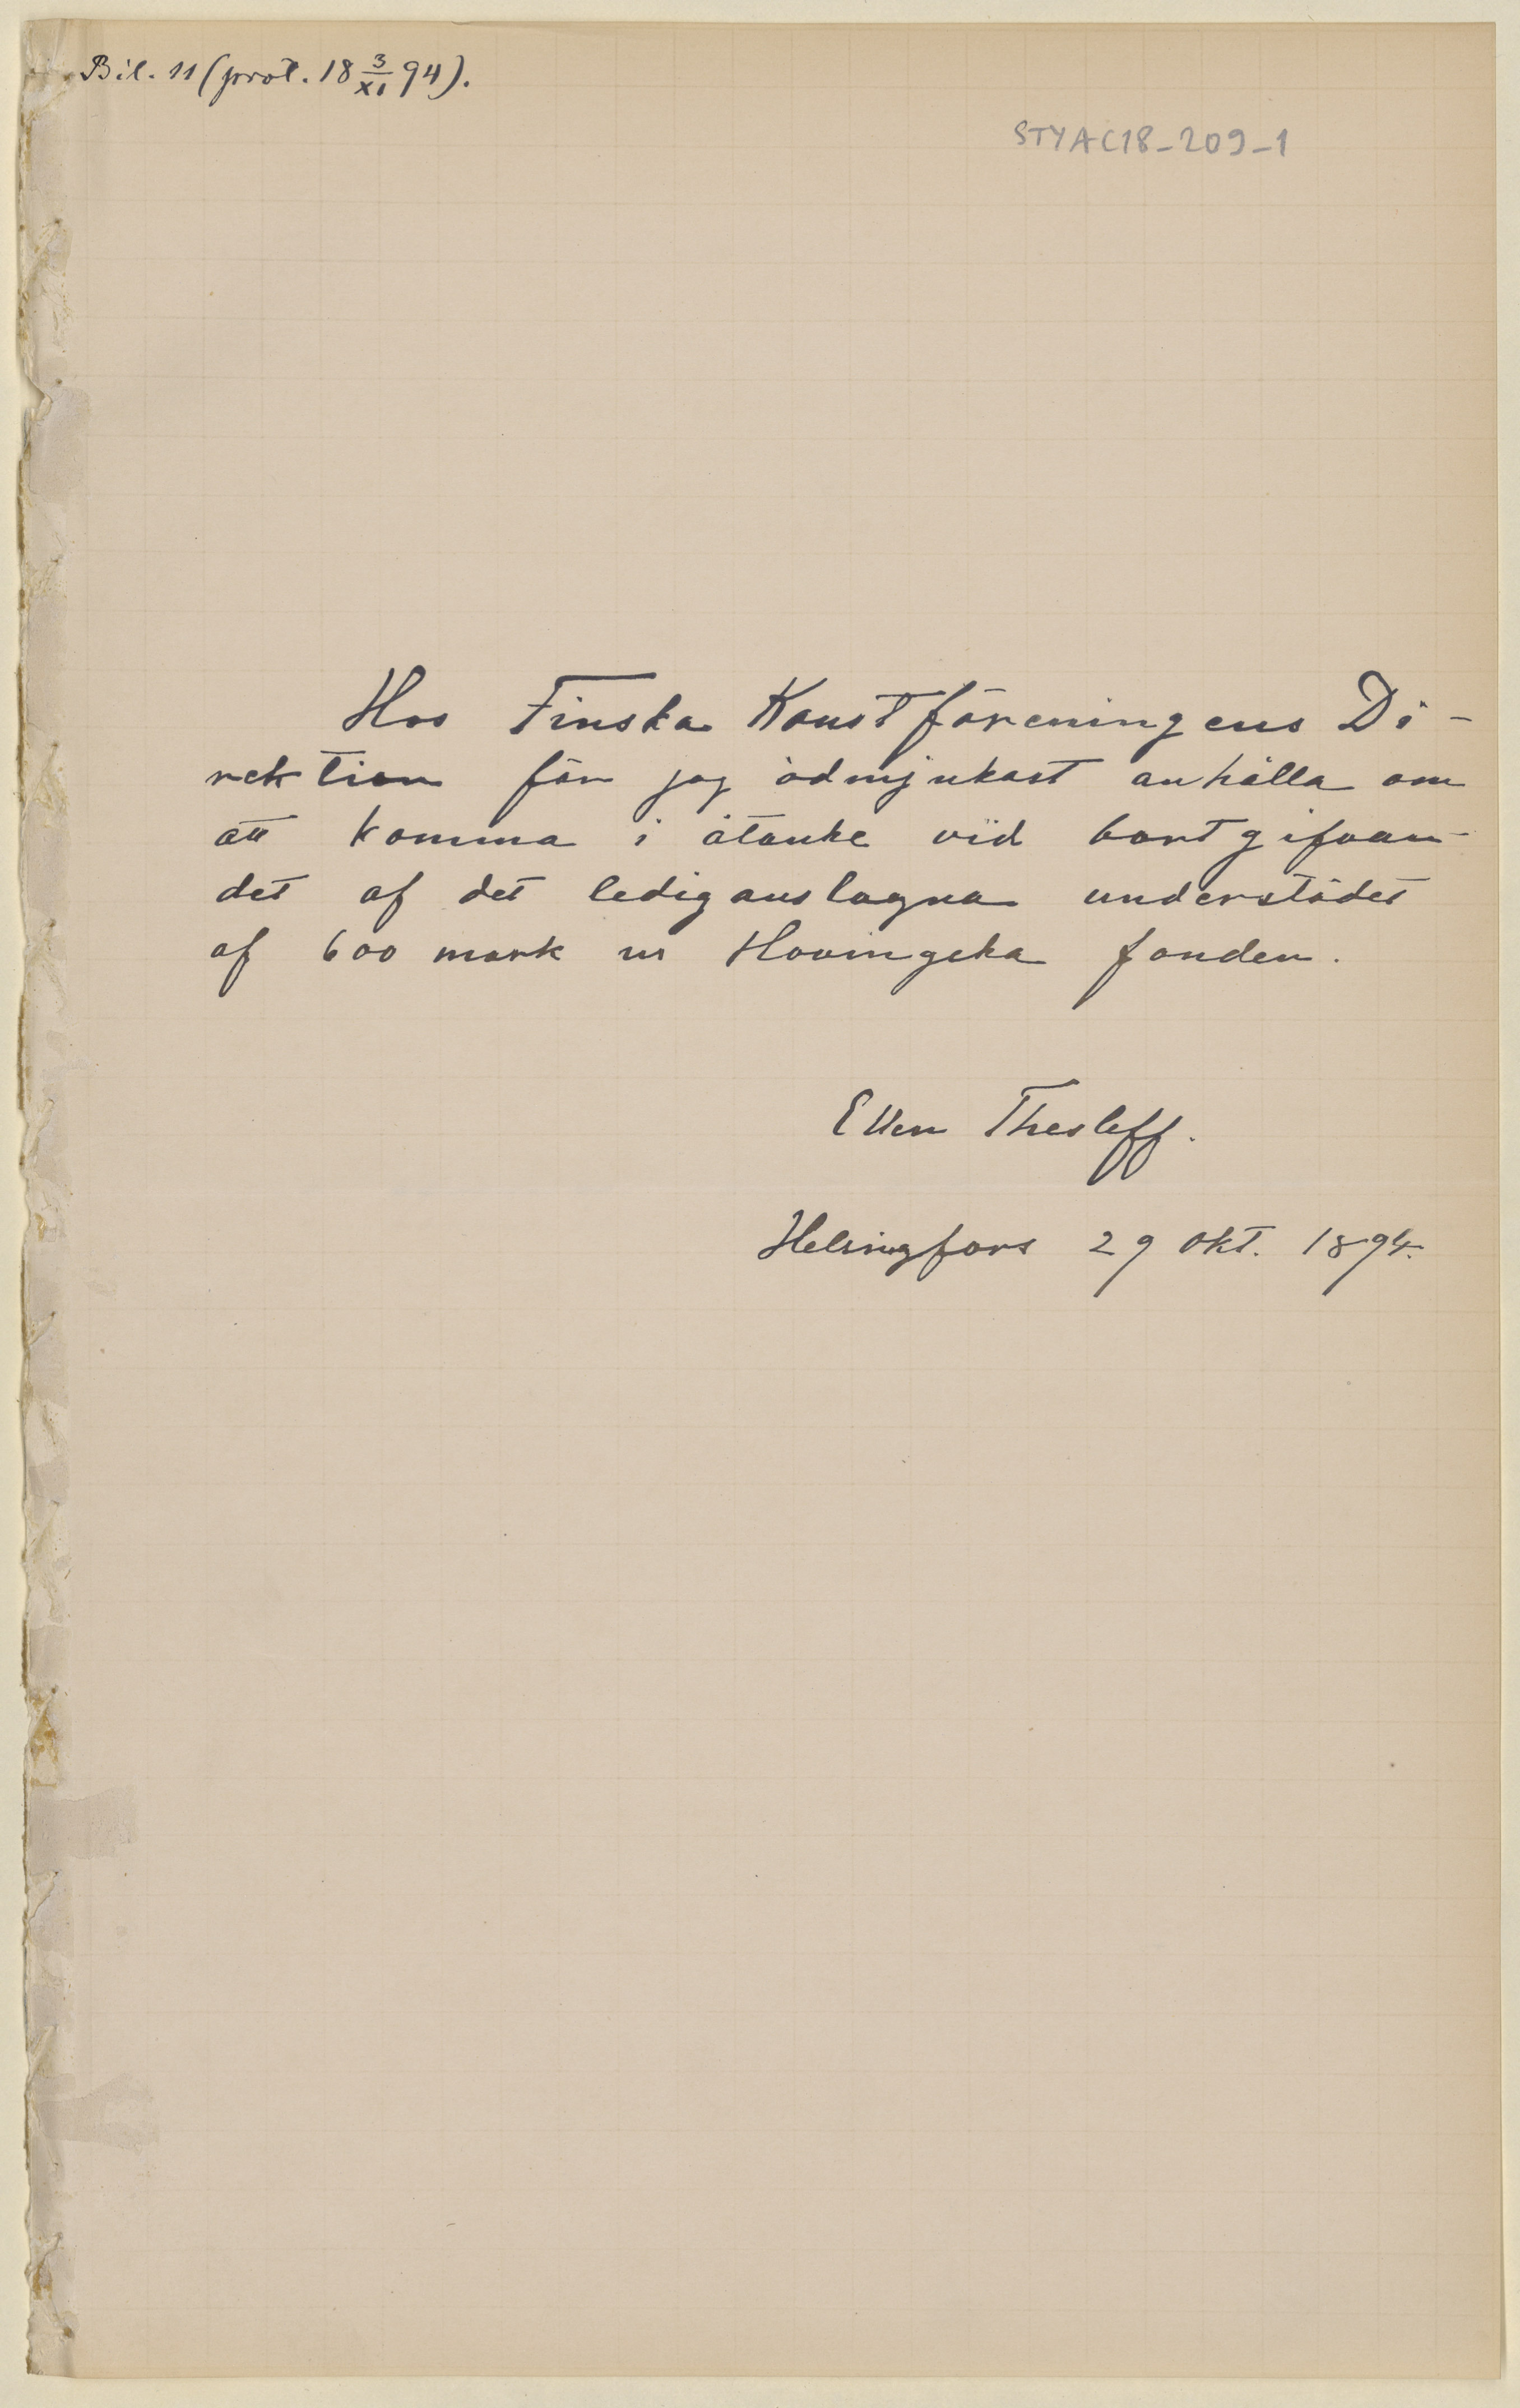 Bil. 11 (prot. 18 3/XI 94).
STYAC18-209-1
Hos Finska Konstföreningens Di-
rektion får jag ödmjukast anhålla om
att komma i åtanke vid bortgifvan-
det af det lediganslagna understödet
af 600 mark ur Hovingska fonden.
Ellen Thesleff.
Helsingfors 29 Okt. 1894.